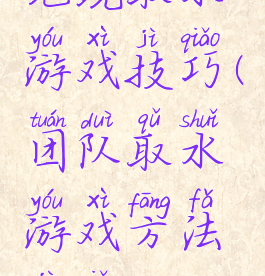 yóu xì jì qiǎo
游戏技巧(
tuán duì qǔ shuǐ
团队取水
yóu xì fāng fǎ
游戏方法